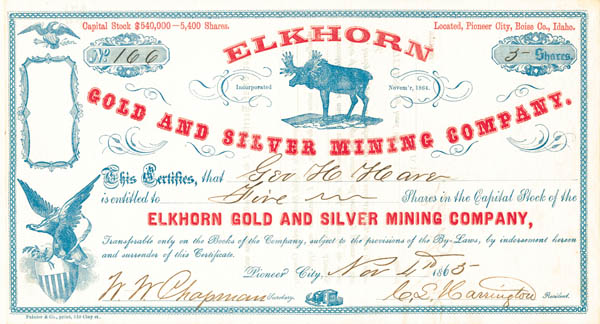 Capital Stock $540,000—5,400 Shares.
Located, Pioneer City, Boise Co., Idaho.
No. 166
ELKHORN
5 Shares.
Incorporated Novem'r, 1864.
GOLD AND SILVER MINING COMPANY.
This Certifies, that Geo H. Hare
is entitled to Five Shares in the Capital Stock of the
ELKHORN GOLD AND SILVER MINING COMPANY,
Transferable only on the Books of the Company, subject to the provisions of the By-Laws, by indorsement hereon
and surrender of this Certificate.
Pioneer City, Nov 4th 1865
W. W. Chapman Secretary.
C. L. Harrington President.
Painter & Co., print, 510 Clay st.